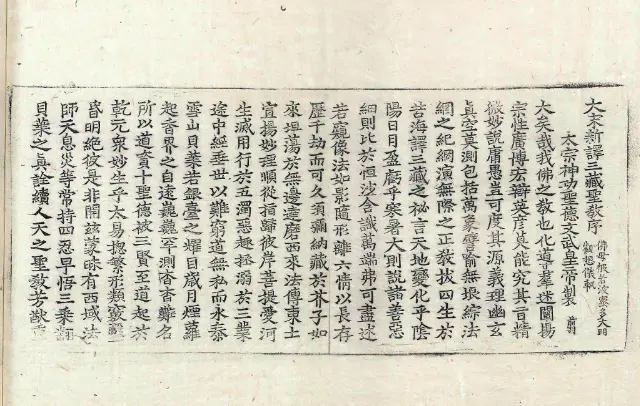 大宋新譯三藏聖教序
佛母般若波羅蜜多大明
觀想儀軌
太宗神功聖德文武皇帝製
大矣哉我佛之教也化導羣迷闡揚
宗性廣博宏辯英彥莫能究其旨精
微妙說庸愚豈可度其源義理幽玄
真空莫測包括萬象譬喻無垠綜法
網之紀綱演無際之正教拔四生於
苦海譯三藏之祕言天地變化乎陰
陽日月盈虧乎寒暑大則說諸善惡
細則比於恒沙含識萬端弗可盡述
若窺像法如影隨形離六情以長存
歷千劫而可久須彌納藏於芥子如
來坦蕩於無邊達磨西來法傳東土
宣揚妙理順從指歸彼岸菩提愛河
生滅用行於五濁惡趣拯溺於三業
途中經垂世以難窮道無私而永泰
雪山貝葉若銀臺之耀目歲月煙蘿
起香界之自遠巍巍罕測杳杳難名
所以道資十聖德被三賢至道起乎
乾元衆妙生乎太易揔繁形類竅鑿
昏明絕彼是非開該蒙昧有西域法
師天息災等常持四忍早悟三乘翻
貝葉之真詮續人天之聖教芳猷重